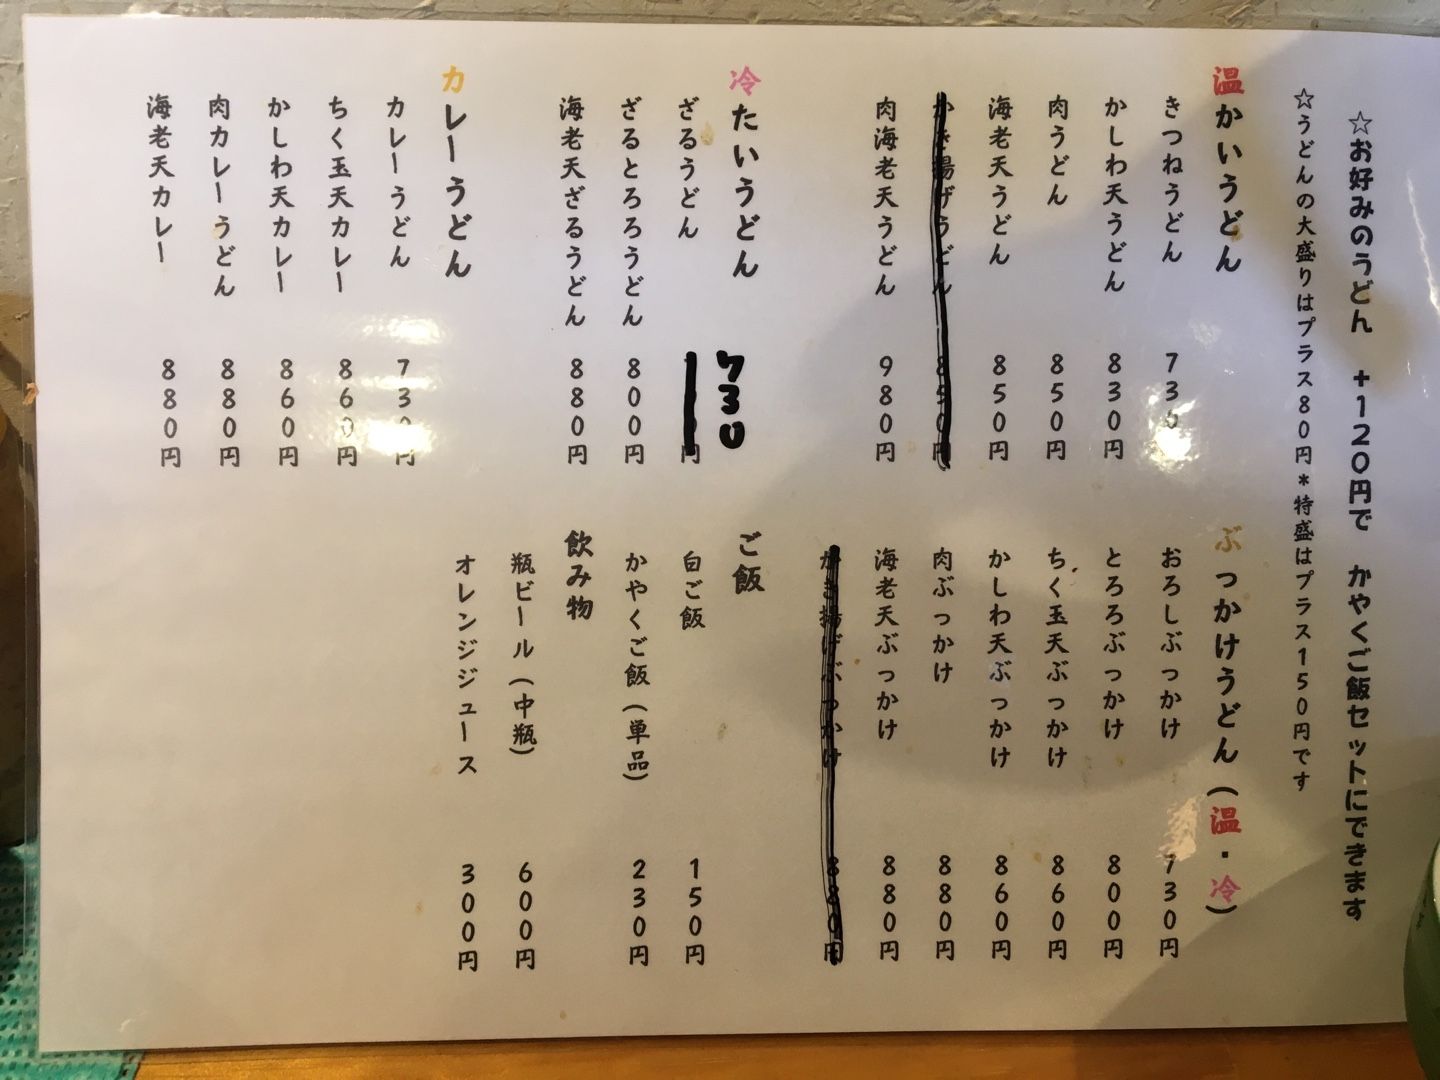 ☆お好みのうどん　+120円で　かやくご飯セットにできます
☆うどんの大盛りはプラス80円*特盛はプラス150円です
温かいうどん
きつねうどん　730
かしわ天うどん　830円
肉うどん　850円
海老天うどん　850円
かき揚げうどん　850円
肉海老天うどん　980円
ぶっかけうどん(温・冷)
おろしぶっかけ　730円
とろろぶっかけ　800円
ちく玉天ぶっかけ　860円
かしわ天ぶっかけ　860円
肉ぶっかけ　880円
海老天ぶっかけ　880円
かき揚げぶっかけ　880円
冷たいうどん　730
ざるうどん　円
ざるとろろうどん　800円
海老天ざるうどん　880円
ご飯
白ご飯　150円
かやくご飯(単品)　230円
飲み物
瓶ビール(中瓶)　600円
オレンジジュース　300円
カレーうどん
カレーうどん　730円
ちく玉天カレー　860円
かしわ天カレー　860円
肉カレーうどん　880円
海老天カレー　880円